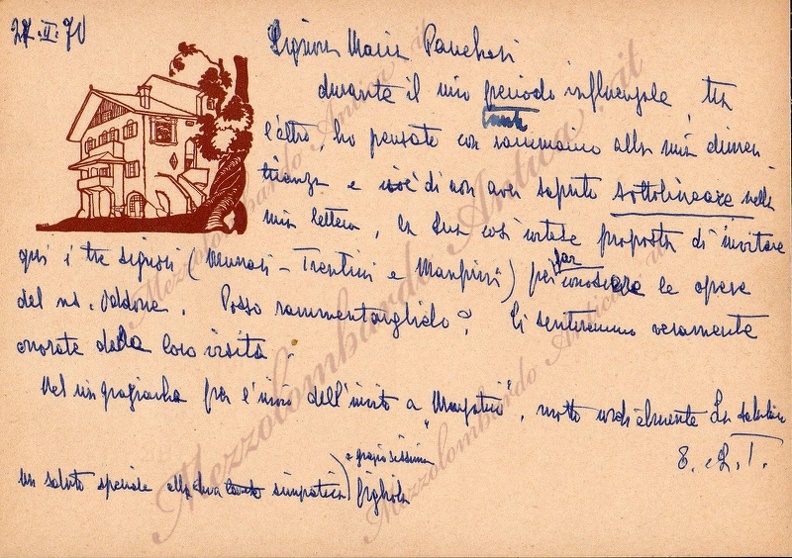 27.II.70
Signora Maria Pancheri
durante il mio periodo influenzale, tra
l'altro, ho pensato con rammarico alla mia dimen
ticanza e cioè di non aver saputo sottolineare nella
mia lettera, la Sua così cortese proposta di invitare
qui i tre signori (Munari - Trentini e Manfrini) per far conoscere le opere
del ns. Valdone. Posso rammentarglielo? Ci sentiremmo veramente
onorate della loro visita.
Nel ringraziarla per l'invio dell'invito a "
", molto cordialmente La salutiamo
E. e R. T.
un saluto speciale alla Sua simpatica e graziosissima figliola
Mezzolombardo Antica.it
Mezzolombardo Antica.it